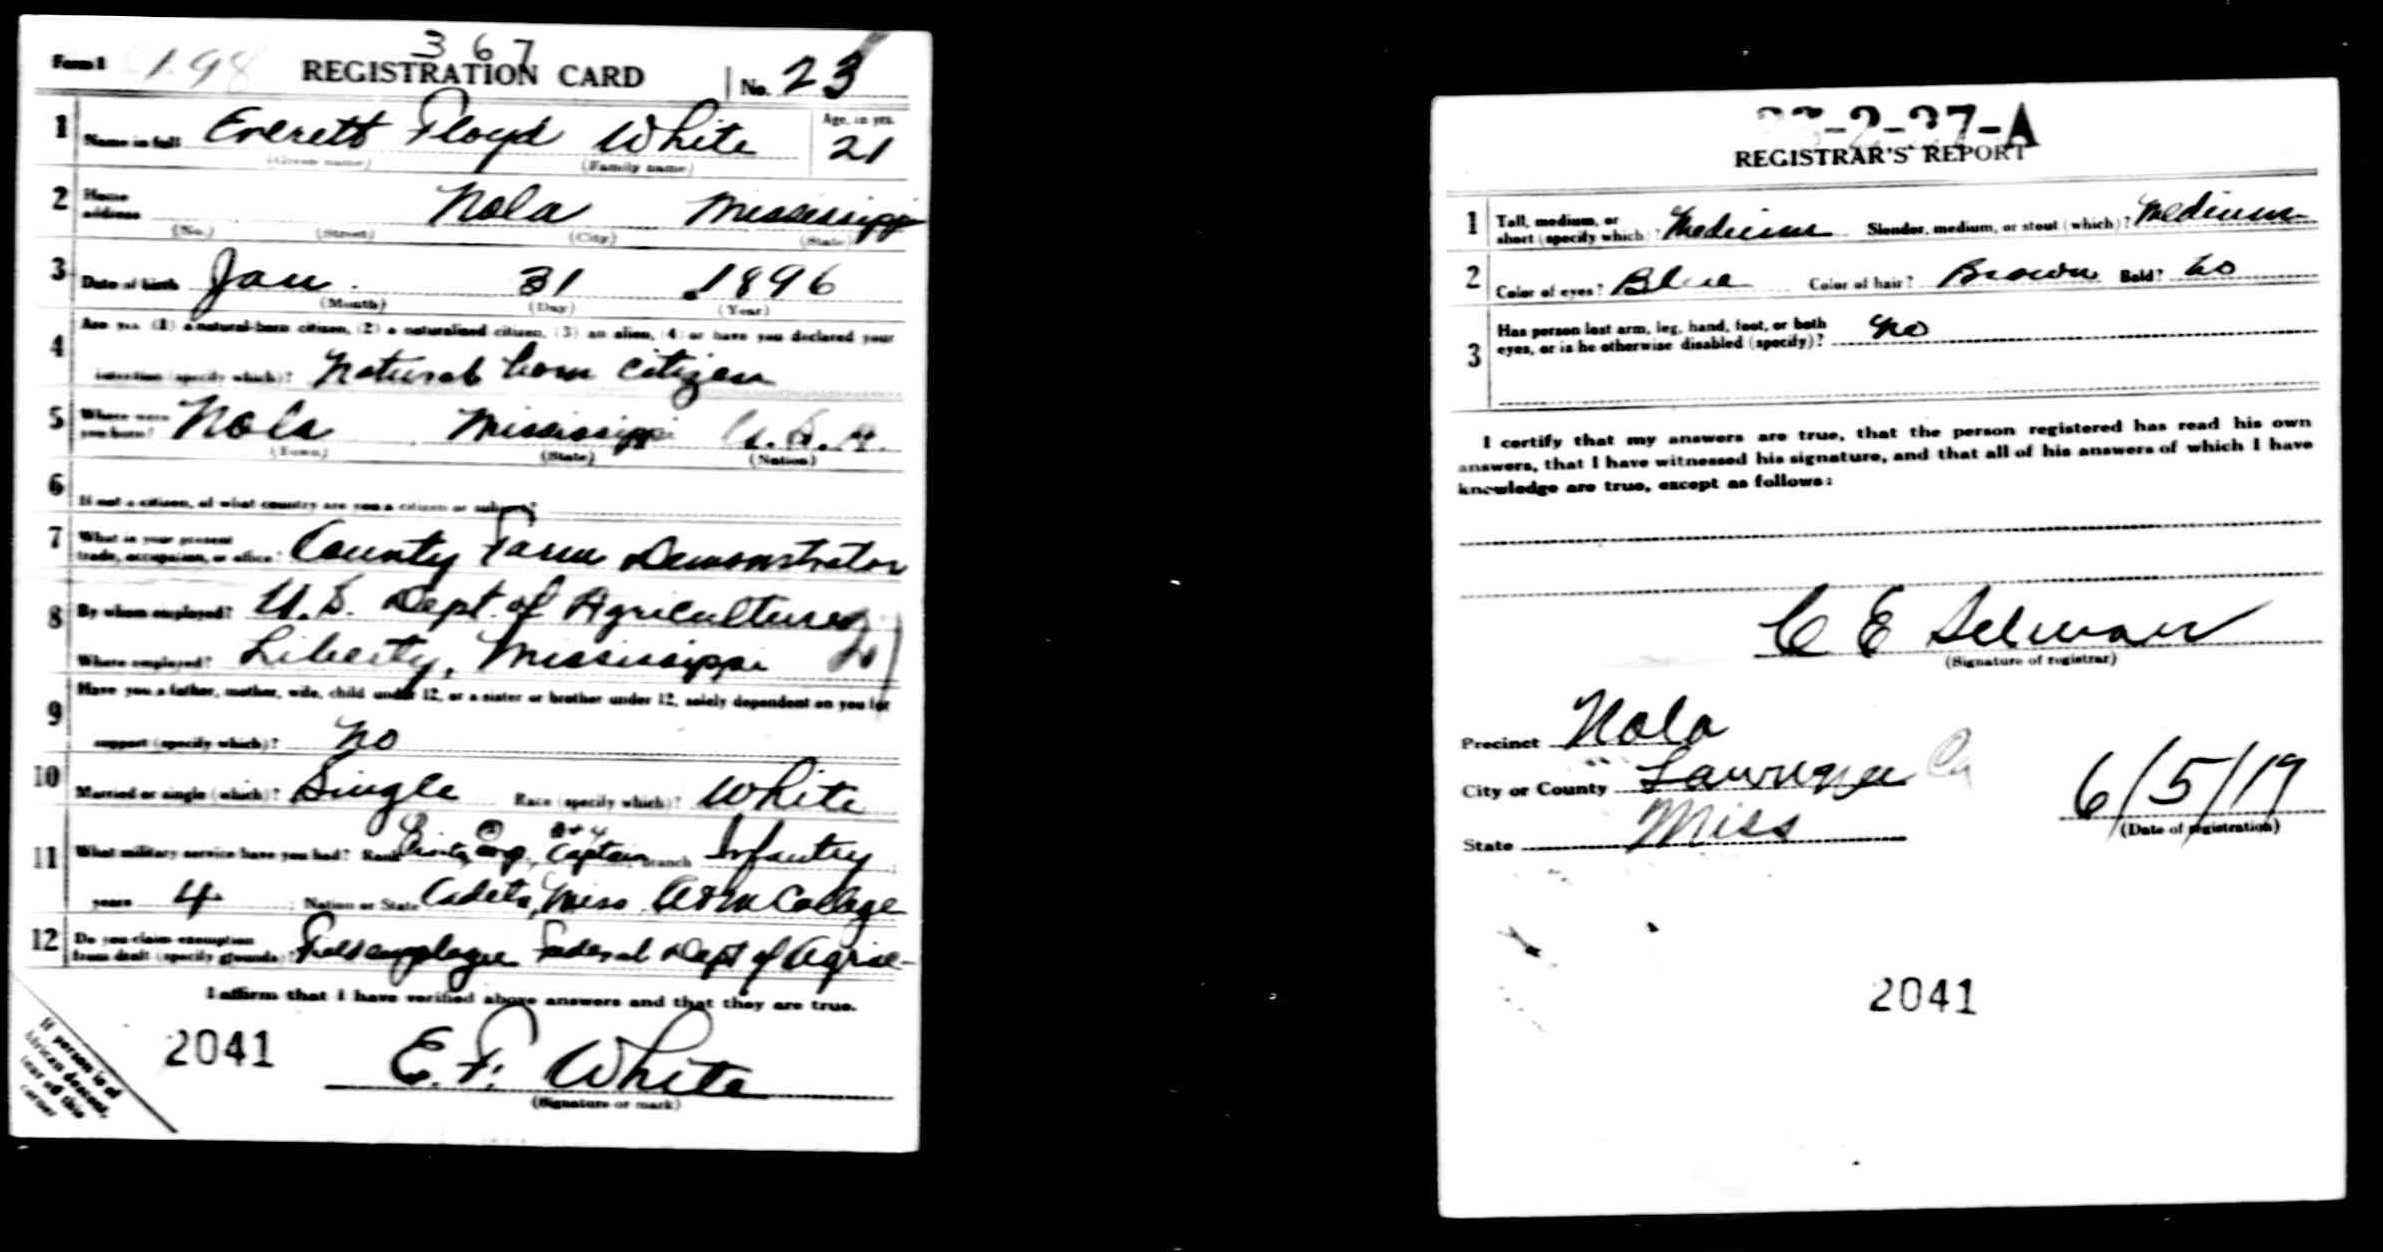 3 6 7
Form 1 198 REGISTRATION CARD No. 23
1 Name in full Everett Floyd White Age, in yrs. 21
(Given name) (Family name)
2 Home address Nola Mississippi
(No.) (Street) (City) (State)
3 Date of birth Jan. 31 1896
(Month) (Day) (Year)
4 Are you (1) a natural-born citizen, (2) a naturalized citizen, (3) an alien, (4) or have you declared your
intention (specify which)? Natural born citizen
5 Where were you born? Nola Mississippi U.S.A.
(Town) (State) (Nation)
6 If not a citizen, of what country are you a citizen or subject?
7 What is your present trade, occupation, or office? County Farm Demonstrator
8 By whom employed? U.S. Dept. of Agriculture
Where employed? Liberty, Mississippi
9 Have you a father, mother, wife, child under 12, or a sister or brother under 12, solely dependent on you for
support (specify which)? No
10 Married or single (which)? Single Race (specify which)? White
11 What military service have you had? Rank Private, Corp, Captain branch Infantry
years 4 Nation or State Cadets, Miss A&M College
12 Do you claim exemption from draft (specify grounds)? Field employee Federal Dept of Agric-
I affirm that I have verified above answers and that they are true.
2041 E. F. White
(Signature or mark)
If person is of
African descent,
tear off this
corner
-2-27-A
REGISTRAR'S REPORT
1 Tall, medium, or short (specify which)? Medium Slender, medium, or stout (which)? Medium
2 Color of eyes? Blue Color of hair? Brown Bald? No
3 Has person lost arm, leg, hand, foot, or both
eyes, or is he otherwise disabled (specify)? No
I certify that my answers are true, that the person registered has read his own
answers, that I have witnessed his signature, and that all of his answers of which I have
knowledge are true, except as follows:
C E Selman
(Signature of registrar)
Precinct Nola
City or County Lawrence Co
State Miss
6/5/17
(Date of registration)
2041